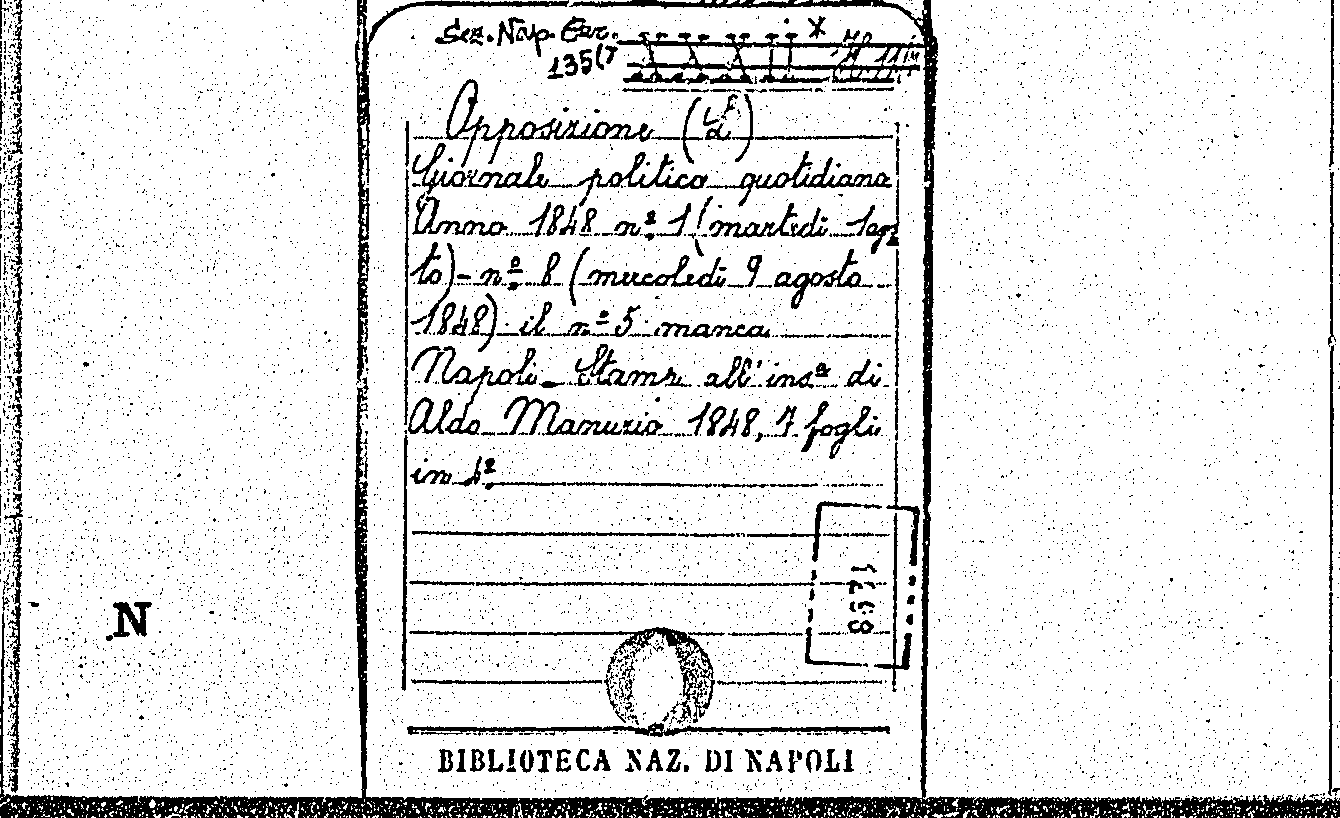 Sez. Nap. Ear.
135(7
Opposizione (L')
Giornale politico quotidiano
Anno 1848 n.º 1 (martedì 1 ago
to) - n.º 8 (mercoledì 9 agosto
1848) il n.º 5 manca
Napoli - Stamp. all' ins.ª di
Aldo Manuzio 1848, 7 fogli
in 4.º
N
BIBLIOTECA NAZ. DI NAPOLI